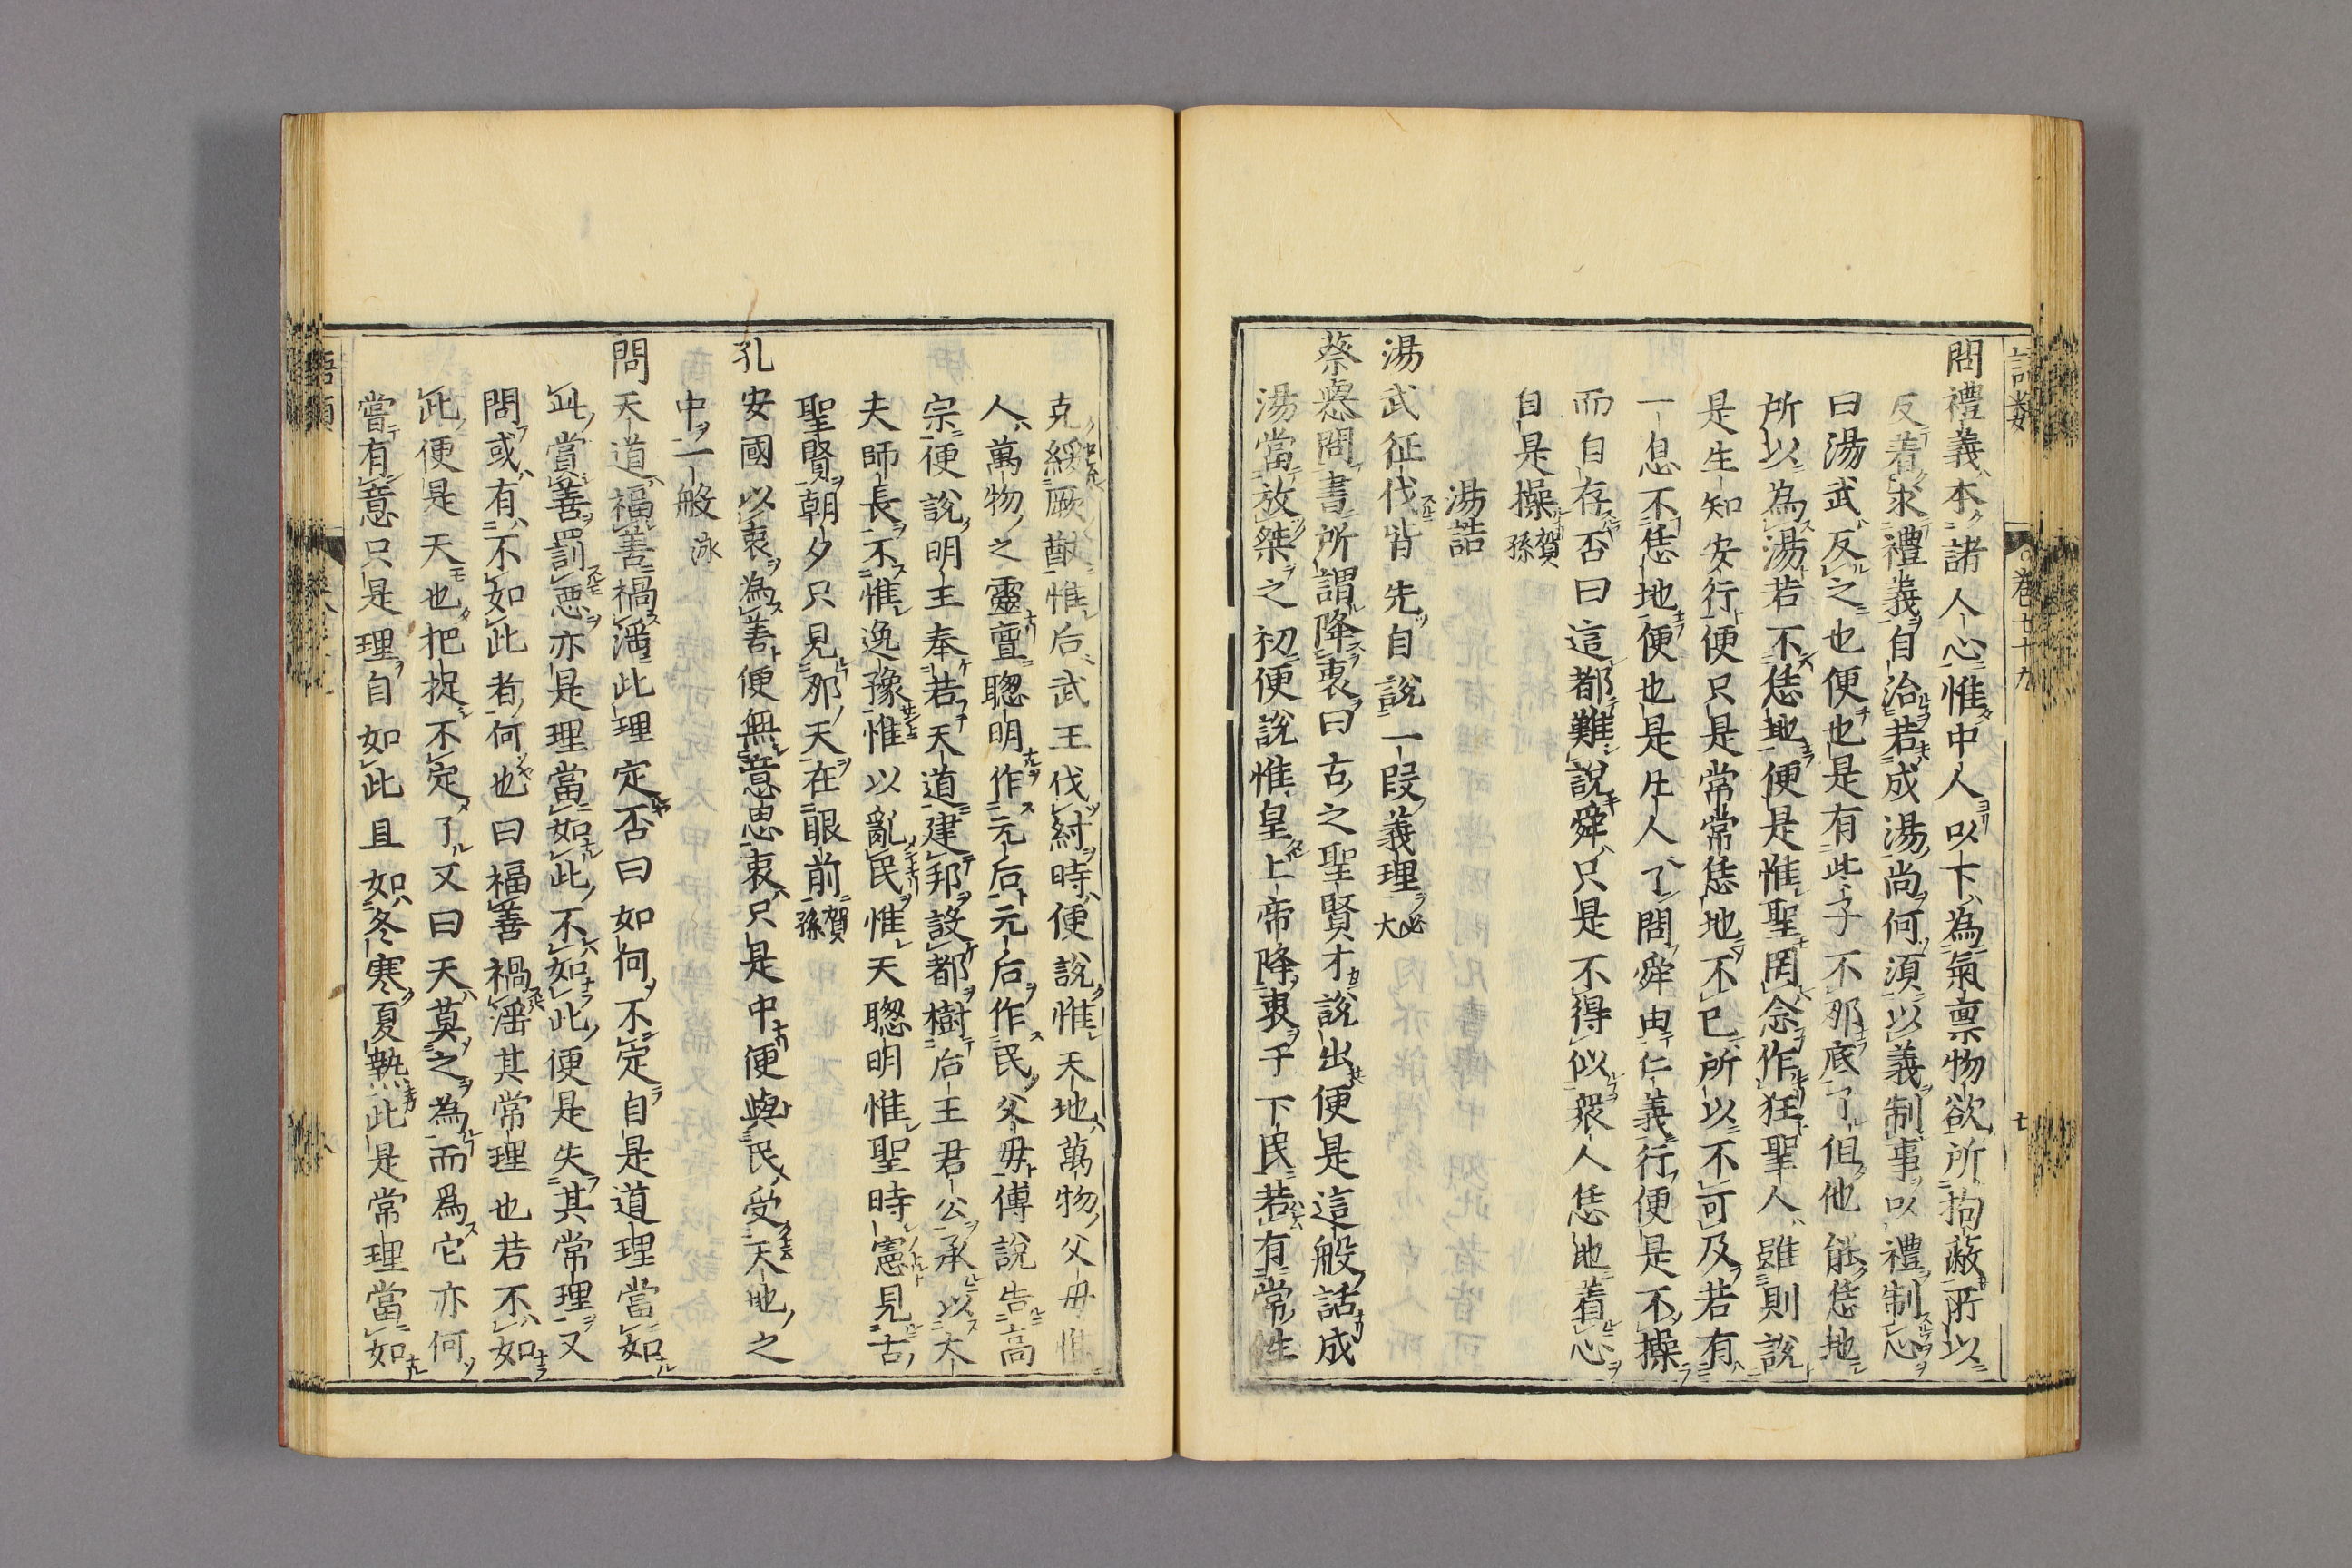 問禮義本諸人心惟中人以下為氣稟物欲所拘蔽所以
反着求禮義自治若成湯尚何湏以義制事以禮制心
曰湯武反之也便也是有些子不那底了但他能恁地
所以為湯若不恁地便是惟聖罔念作狂聖人雖則說
是生知安行便只是常常恁地不已所以不可及若有
一息不恁地便也是凡人了問舜由仁義行便是不操
而自存否曰這都難說舜只是不得似衆人恁地着心
自是操賀孫
湯誥
湯武征伐皆先自說一段義理必大
蔡𢙀問書所謂降衷曰古之聖賢才說出便是這般話成
湯當放桀之初便說惟皇上帝降衷于下民若有常性
克綏厥猷惟后武王伐紂時便說惟天地萬物父母惟
人萬物之靈亶聦明作元后元后作民父毋傅說告高
宗便說明王奉若天道建邦設都樹后王君公承以大
夫師長不惟逸豫惟以亂民惟天聦明惟聖時憲見古
聖賢朝夕只見那天在眼前賀孫
孔安國以衷為善便無意思衷只是中便與民受天地之
中一般泳
問天道福善禍滛此理定否曰如何不定自是道理當如
此賞善罰悪亦是理當如此不如此便是失其常理又
問或有不如此者何也曰福善禍滛其常理也若不如
此便是天也把捉不定了又曰天莫之為而爲它亦何
嘗有意只是理自如此且如冬寒夏熱此是常理當如
語類
卷七十九
七